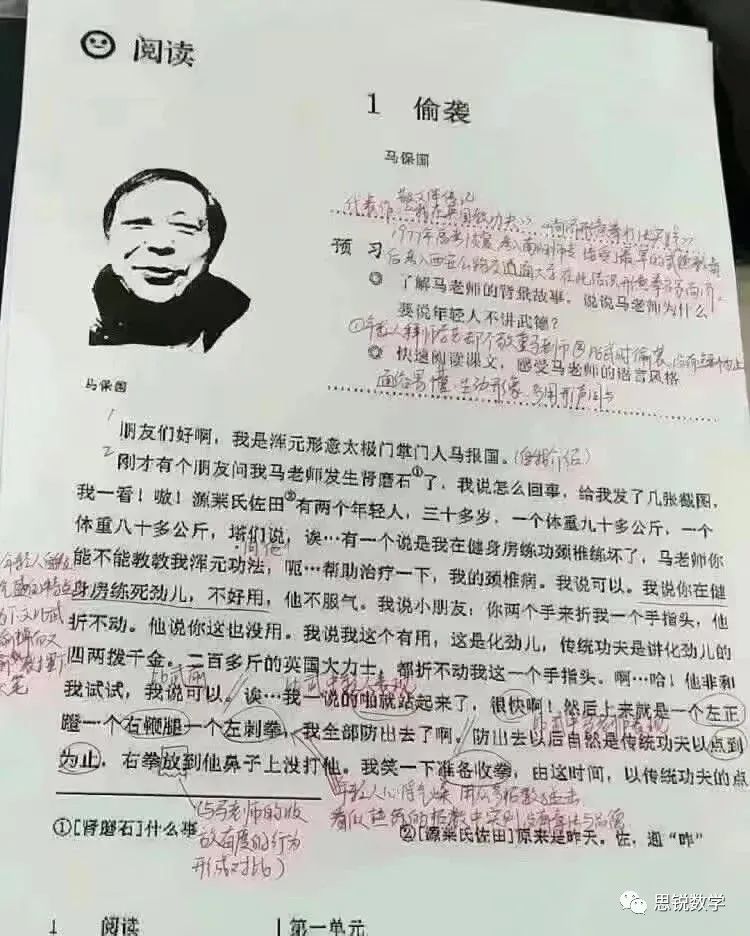 阅读
1 偷袭
马保国
预习
◎ 了解马老师的背景故事，说说马老师为什么
要说年轻人不讲武德？
◎ 快速阅读课文，感受马老师的语言风格
马保国
1
朋友们好啊，我是浑元形意太极门掌门人马报国。(自我介绍)
2
刚才有个朋友问我马老师发生肾磨石①了，我说怎么回事，给我发了几张截图，
我一看！嗷！源来氏佐田②有两个年轻人，三十多岁，一个体重九十多公斤，一个
体重八十多公斤，塔们说，诶…有一个说是我在健身房练功颈椎练坏了，马老师你
能不能教教我浑元功法，呃…帮助治疗一下，我的颈椎病。我说可以。我说你在健
身房练死劲儿，不好用，他不服气。我说小朋友：你两个手来折我一个手指头，他
折不动。他说你这也没用。我说我这个有用，这是化劲儿，传统功夫是讲化劲儿的
四两拨千金。二百多斤的英国大力士，都折不动我这一个手指头。啊…哈！他非和
我试试，我说可以。诶…我一说的啪就站起来了，很快啊！然后上来就是一个左正
蹬一个右鞭腿一个左刺拳，我全部防出去了啊。防出去以后自然是传统功夫以点到
为止，右拳放到他鼻子上没打他。我笑一下准备收拳，由这时间，以传统功夫的点
(与马老师的收
放有度的行为
形成对比)
①[肾磨石]什么事
②[源来氏佐田]原来是昨天。佐，通“昨”
1 阅读 | 第一单元
思锐数学